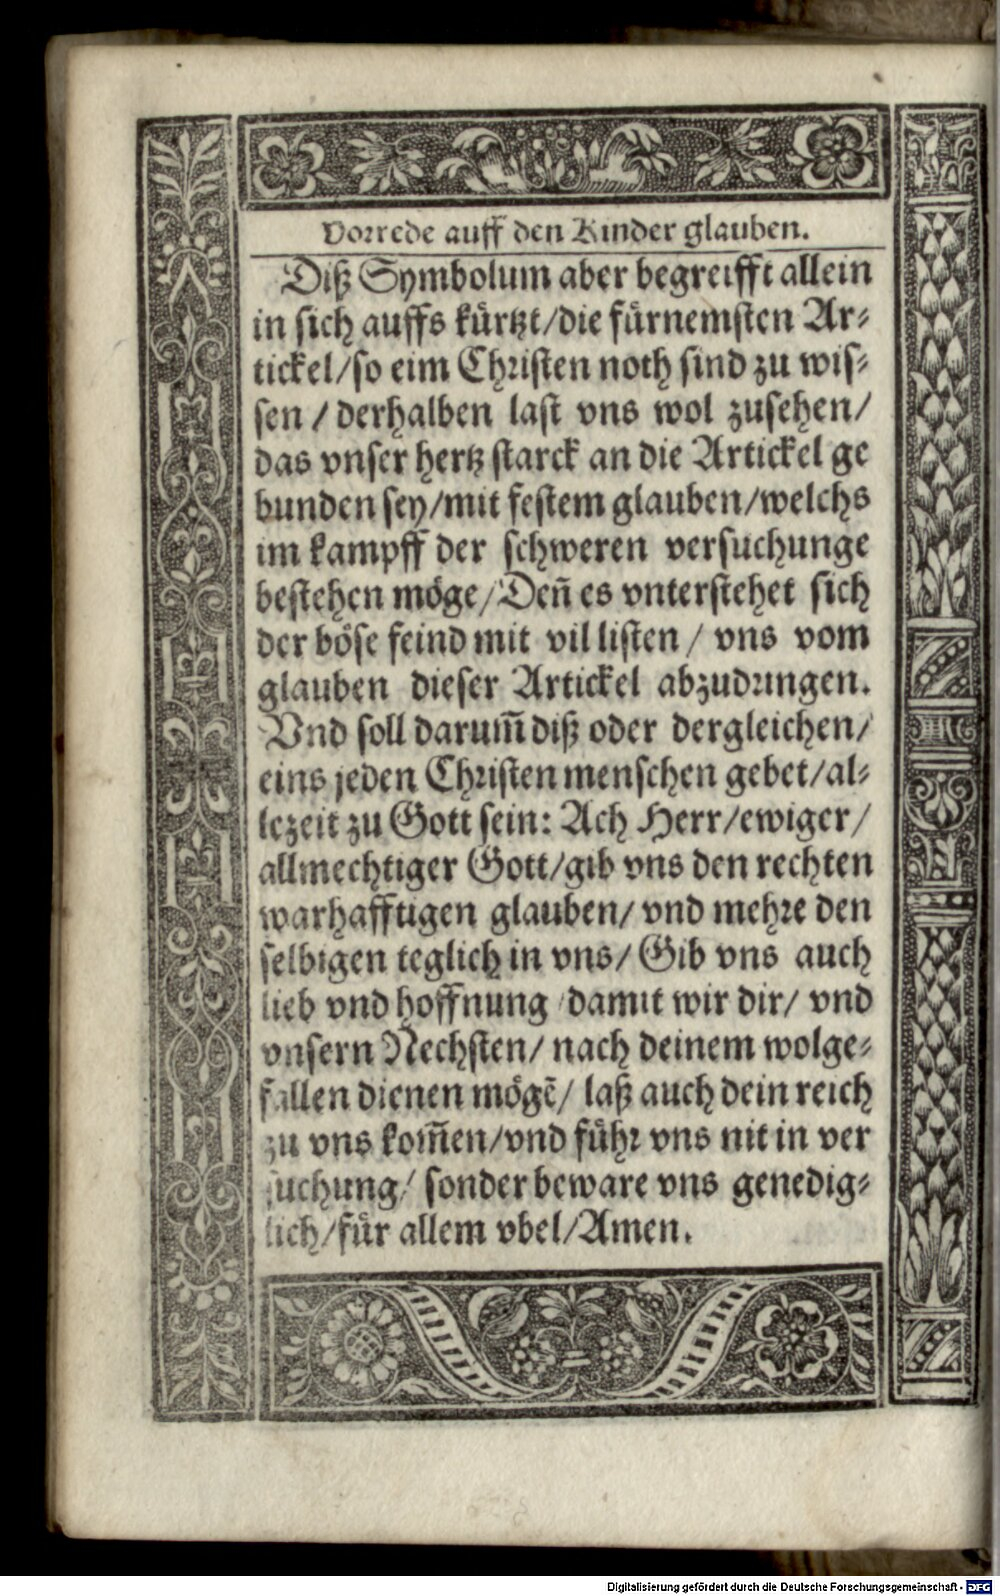 Vorrede auff den Kinder glauben.
Diß Symbolum aber begreifft allein
in sich auffs kürtzt/die fürnemsten Ar⸗
tickel/so eim Christen noth sind zu wis⸗
sen / derhalben last vns wol zusehen/
das vnser hertz starck an die Artickel ge
bunden sey/mit festem glauben/welchs
im kampff der schweren versuchunge
bestehen möge/Deñ es vnterstehet sich
der böse feind mit vil listen / vns vom
glauben dieser Artickel abzudringen.
Vnd soll darum̃ diß oder dergleichen/
eins jeden Christen menschen gebet/al⸗
lezeit zu Gott sein: Ach Herr/ewiger/
allmechtiger Gott/gib vns den rechten
warhafftigen glauben/ vnd mehre den
selbigen teglich in vns/ Gib vns auch
lieb vnd hoffnung /damit wir dir/ vnd
vnsern Nechsten/ nach deinem wolge⸗
fallen dienen mögẽ/ laß auch dein reich
zu vns kom̃en/vnd führ vns nit in ver
suchung/ sonder beware vns genedig⸗
lich/für allem vbel/Amen.
Digitalisierung gefördert durch die Deutsche Forschungsgemeinschaft - DFG